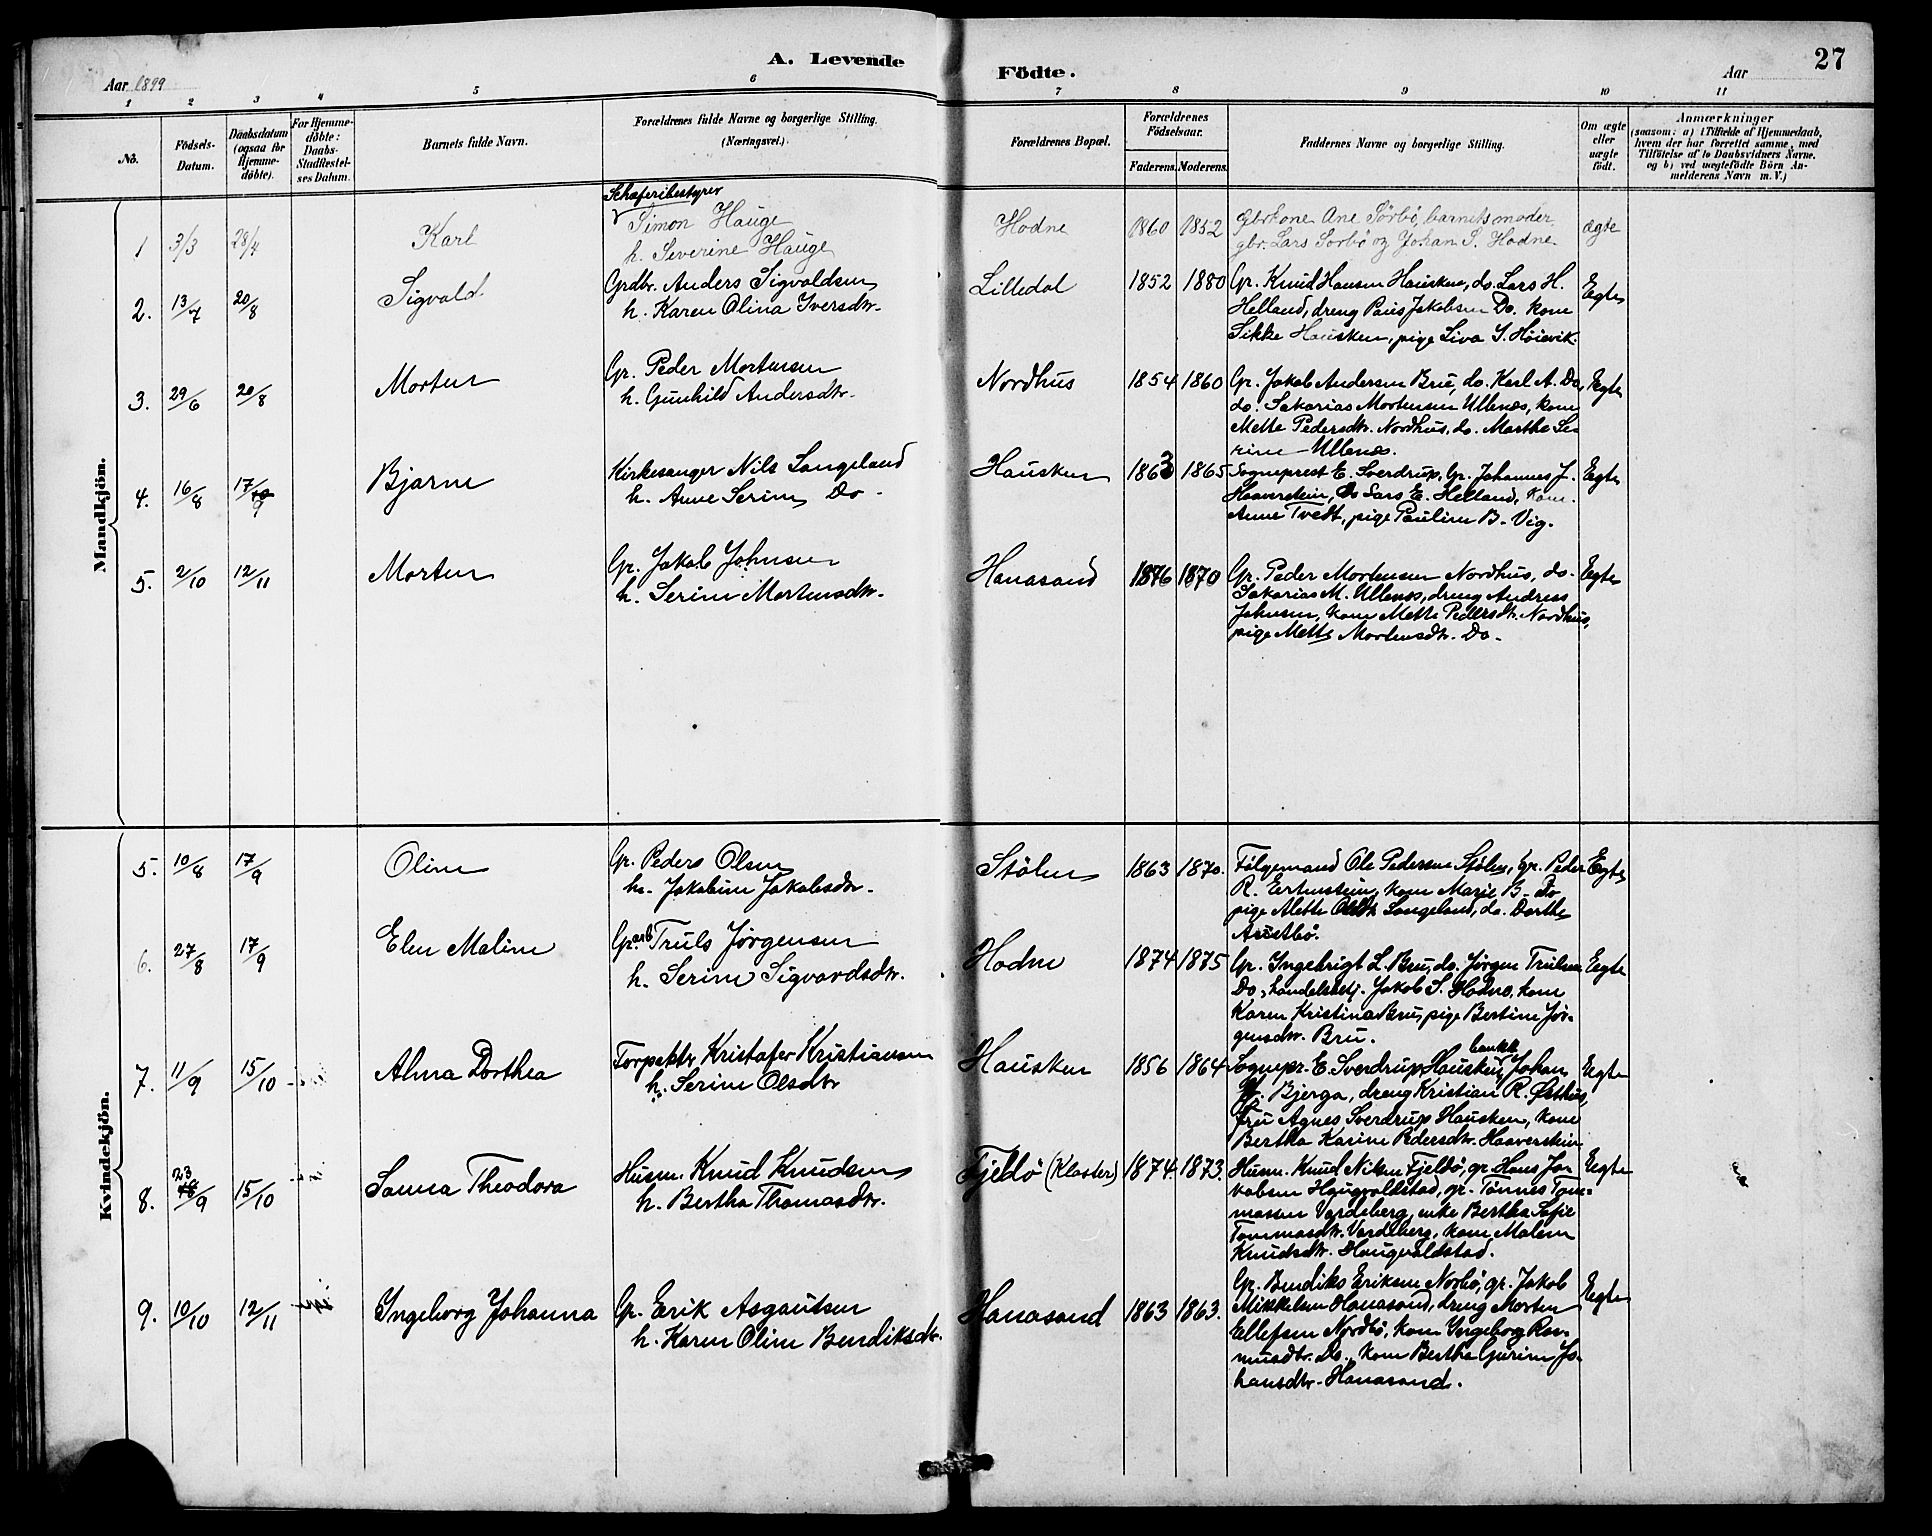 A. Levende Födte.
27
Aar 1899
Aar
1 2 3 4 5 6 7 8 9 10 11
No.
Födsels-Datum.
Daabsdatum (ogsaa for Hjemme-döbte).
For Hjemme-döbte: Daabs-Stadfæstel-ses Datum.
Barnets fulde Navn.
Forældrenes fulde Navne og borgerlige Stilling. (Næringsvei.)
Forældrenes Bopæl.
Forældrenes Födselsaar.
Faderens. Moderens.
Faddernes Navne og borgerlige Stilling.
Om ægte eller uægte födt.
Anmærkninger
(saasom: a) i Tilfælde af Hjemmedaab,
hvem der har forrettet samme, med
Tilföielse af to Daabsvidners Navne.
og b) ved uægtefödte Börn An-
melderens Navn m. V.)
Mandkjön.
1 3/3 28/4 Karl
Schæferibestyrer
Simon Hauge
h. Severine Hauge
Hodne 1860 1852
Gbrkone Ane Sörbö, barnets moder
gbr. Lars Sorbö og Johan S. Hodne
ægte
2. 13/7 20/8 Sigvald.
Grdbr. Anders Sigvaldsen
h. Karen Olina Iversdtr.
Lilledal 1852 1880
Gr. Knud Hansen Hausken, do. Lars H.
Helland, dreng Paus Jakobsen Do. kone
Sikke Hausken, pige Siva S. Höievik.
Egte
3. 29/6 20/8 Morten
Gr. Peder Mortensen
h. Gunhild Andersdtr.
Nordhus 1854 1860
Gr. Jakob Andersen Bru, do. Karl A. Do,
do. Sakarias Mortensen Ullenes, kone
Mette Pedersdtr. Nordhus, do. Marthe Se-
rine Ullenes.
Egte
4. 16/8 17/9 Bjarne
Kirkesanger Nils Langeland
h. Anne Serine Do.
Hausken 1863 1865
Sogneprest E. Sverdrup, Gr. Johannes J.
Haaverstein, Do Lars E. Helland, Kone
Anne Tvedt, pige Pauline B. Vig.
Egte
5. 2/10 12/11 Morten
Gr. Jakob Johnsen
h. Serine Mortensdtr.
Hanasand 1876 1870
Gr. Peder Mortensen Nordhus, do.
Sakarias M. Ullenes, dreng Andreas
Johnsen, kone Mette Pedersdtr. Nordhus,
pige Mette Mortensdtr. Do.
Egte
Kvindekjön.
5. 10/8 17/9 Oline
Gr. Peder Olsen
h. Jakobine Jakobsdtr.
Stölen 1863 1870.
Fölgemand Ole Pedersen Stölen, Gr. Peder
R. Ertenstein, kone Marie B. Do
pige Mette Langeland, do. Dorthe
Austbö.
Egte
6. 27/8 17/9 Elen Maline
Gr. Truls Jørgensen
h. Serine Sigvardsdtr.
Hodne 1874 1875
Gr. Ingebrigt L. Bru, do. Jørgen Trulsen
Do, handelsbetj. Jakob S. Hodne, kone
Karen Kristina Bru, pige Bertine Jør-
gensdtr. Bru.
Egte
7. 11/9 15/10 Alma Dorthea
Torpektr. Kristofer Kristiansen
h. Serine Olsdtr
Hausken 1856 1864
Sognepr. E. Sverdrup Hausken, Johan
Bjerga, dreng Kristian R. Østhus,
Fru Agnes Sverdrup Hausken, kone
Bertha Karine Pedersdtr. Haaverstein
Egte
8. 23/9 15/10 Sanna Theodora
Husm. Knud Knudsen
h. Bertha Thomasdtr.
Fjeldö (Kloster) 1874. 1873.
Husm. Knud Nilsen Fjeldö, gr. Hans Ja-
kobsen Haugvaldstad, gr. Tönnes Tom-
massen Vardeberg, enke Bertha Sofie
Tommasdtr. Vardeberg, kone Malene
Knudsdtr. Haugvaldstad.
Egte
9. 10/10 12/11 Ingeborg Johanna
Gr. Erik Asgautsen
h. Karen Oline Bendiksdtr.
Hanasand 1863 1863.
Gr. Bendiks Eriksen Norbö, gr. Jakob
Mikkelsen Hanasand, dreng Morten
Ellefsen Nordbö, kone Ingeborg Ras-
musdtr. Do., kone Bertha Gurine Jo-
hansdtr. Hanasand.
Egte